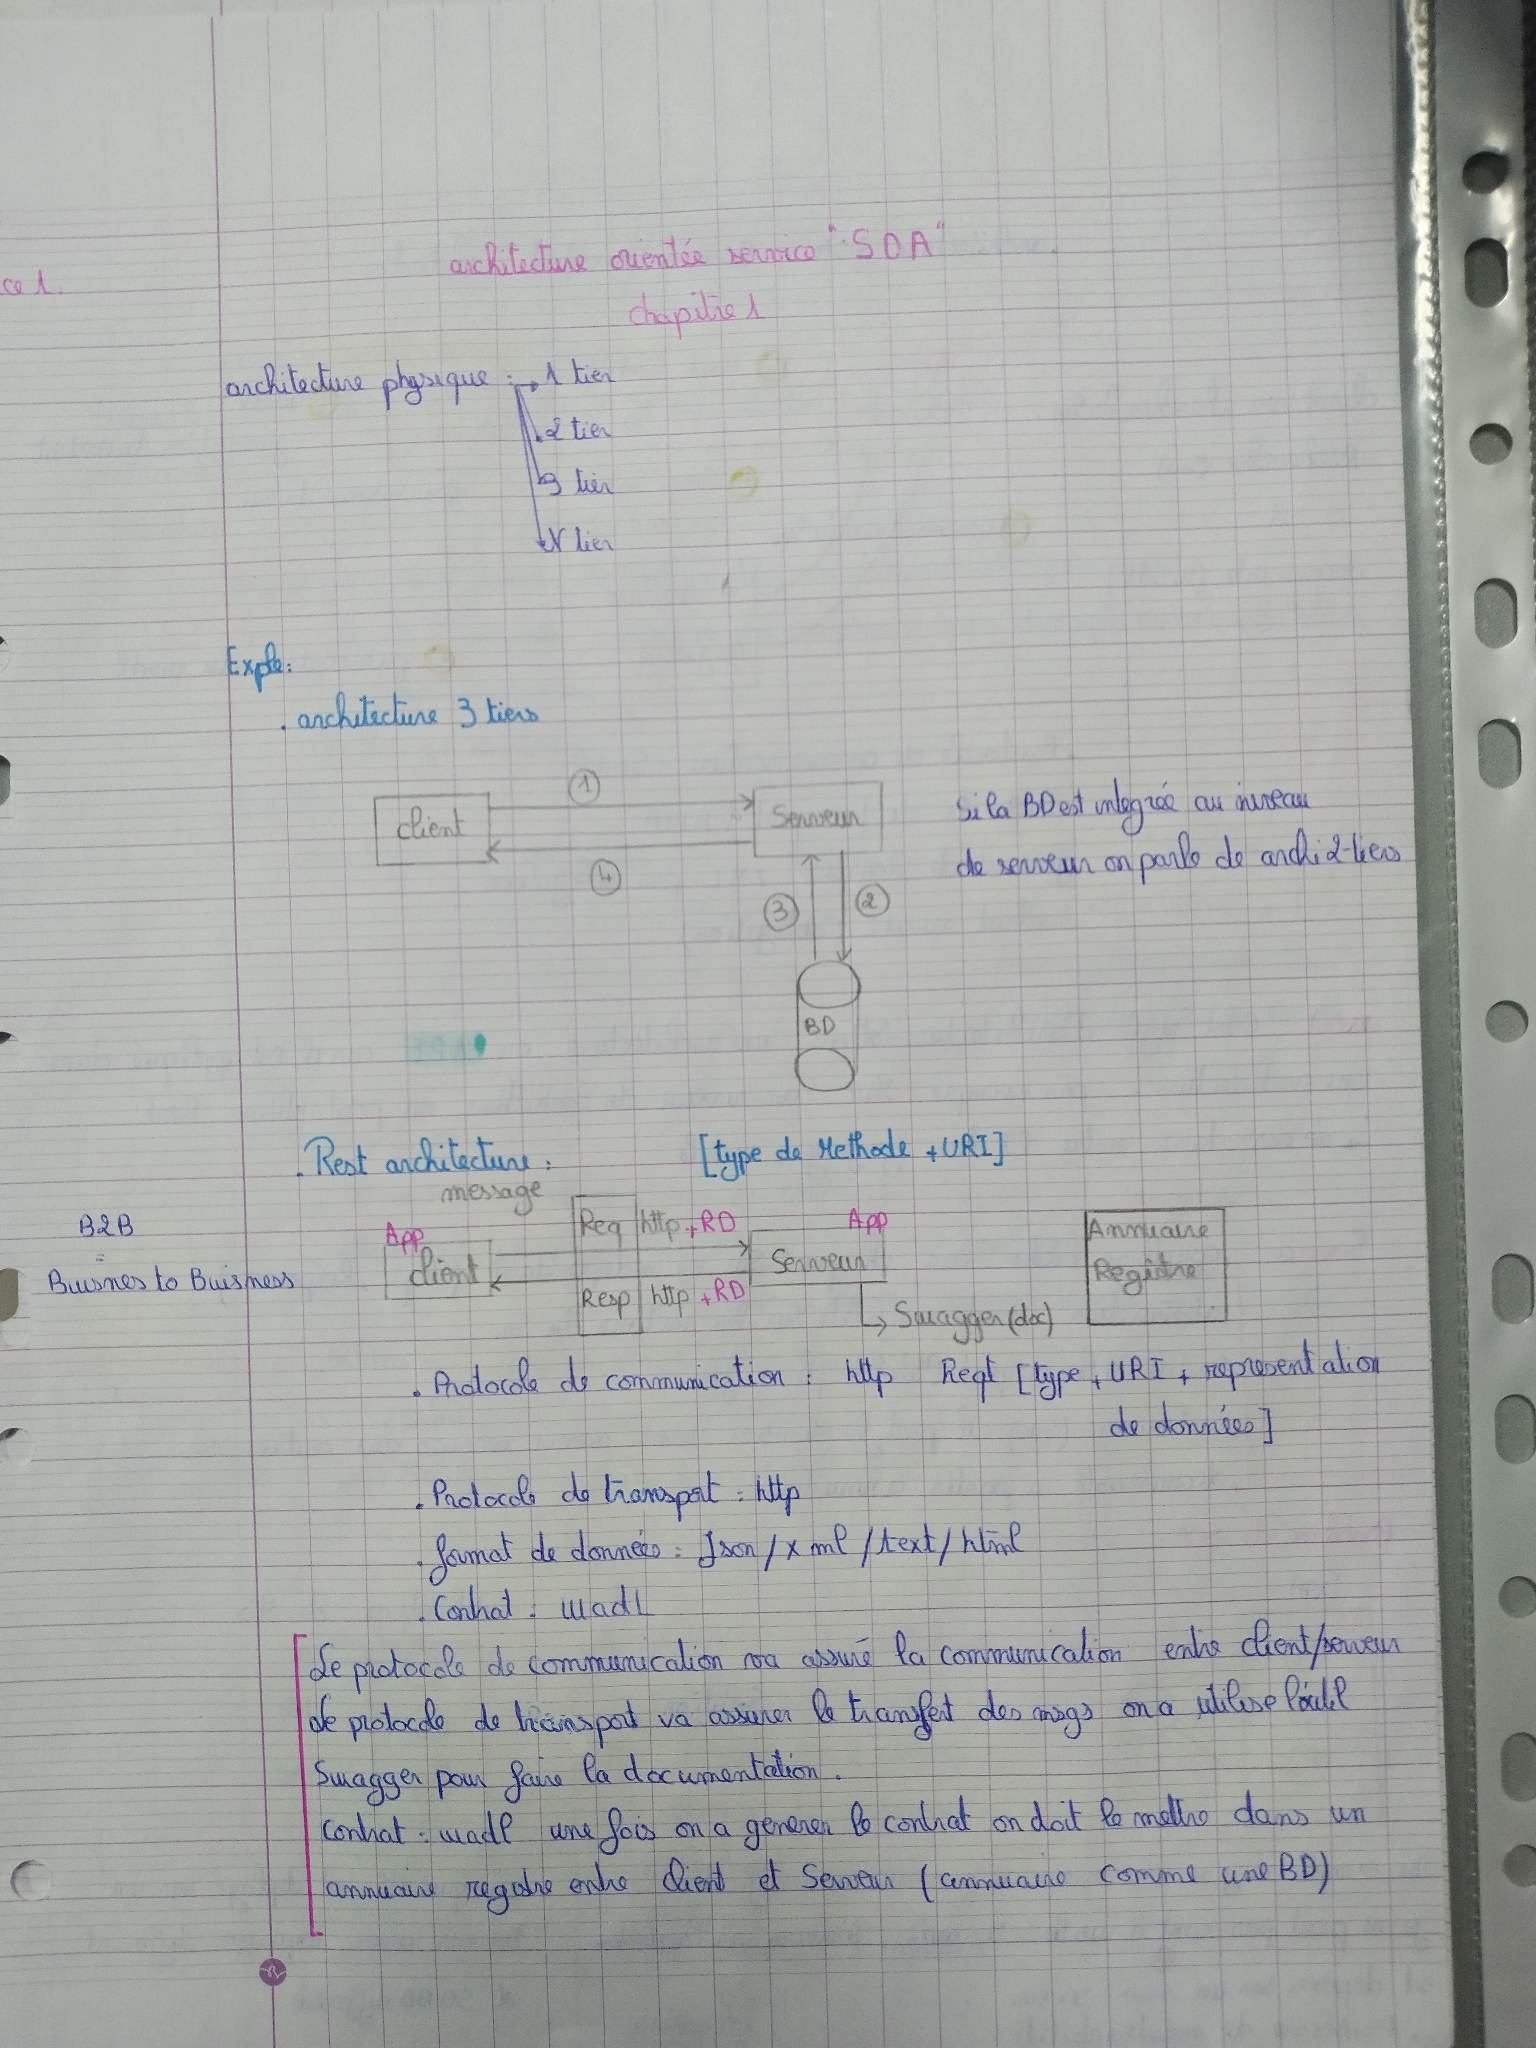 architecture orientée service "SOA"
ce 1.
chapitre 1
architecture physique : 1 tier
2 tier
3 tier
N tier
Exple:
. architecture 3 tiers
1
client
Serveur
Si la BD est integrée au niveau
de serveur on parle de archi 2-tiers
4
3
2
BD
. Rest architecture : [type de Methode + URI]
message
B2B
=
Buisnes to Buisness
App
Req http + RD
App
client
Serveur
Resp http + RD
Annuaire
Registre
Swagger (doc)
. Protocole de communication : http Reqt [type + URI + representation
de données]
. Protocole de transport : http
. format de données : Json / xml / text / html
. Contrat : wadL
Le protocole de communication va assuré la communication entre client/serveur
Le protocole de transport va assurer le transfert des msgs on a utilise l'outil
Swagger pour faire la documentation.
contrat : wadl une fois on a generer le contrat on doit le mettre dans un
annuaire registre entre client et Serveur (annuaire comme une BD)